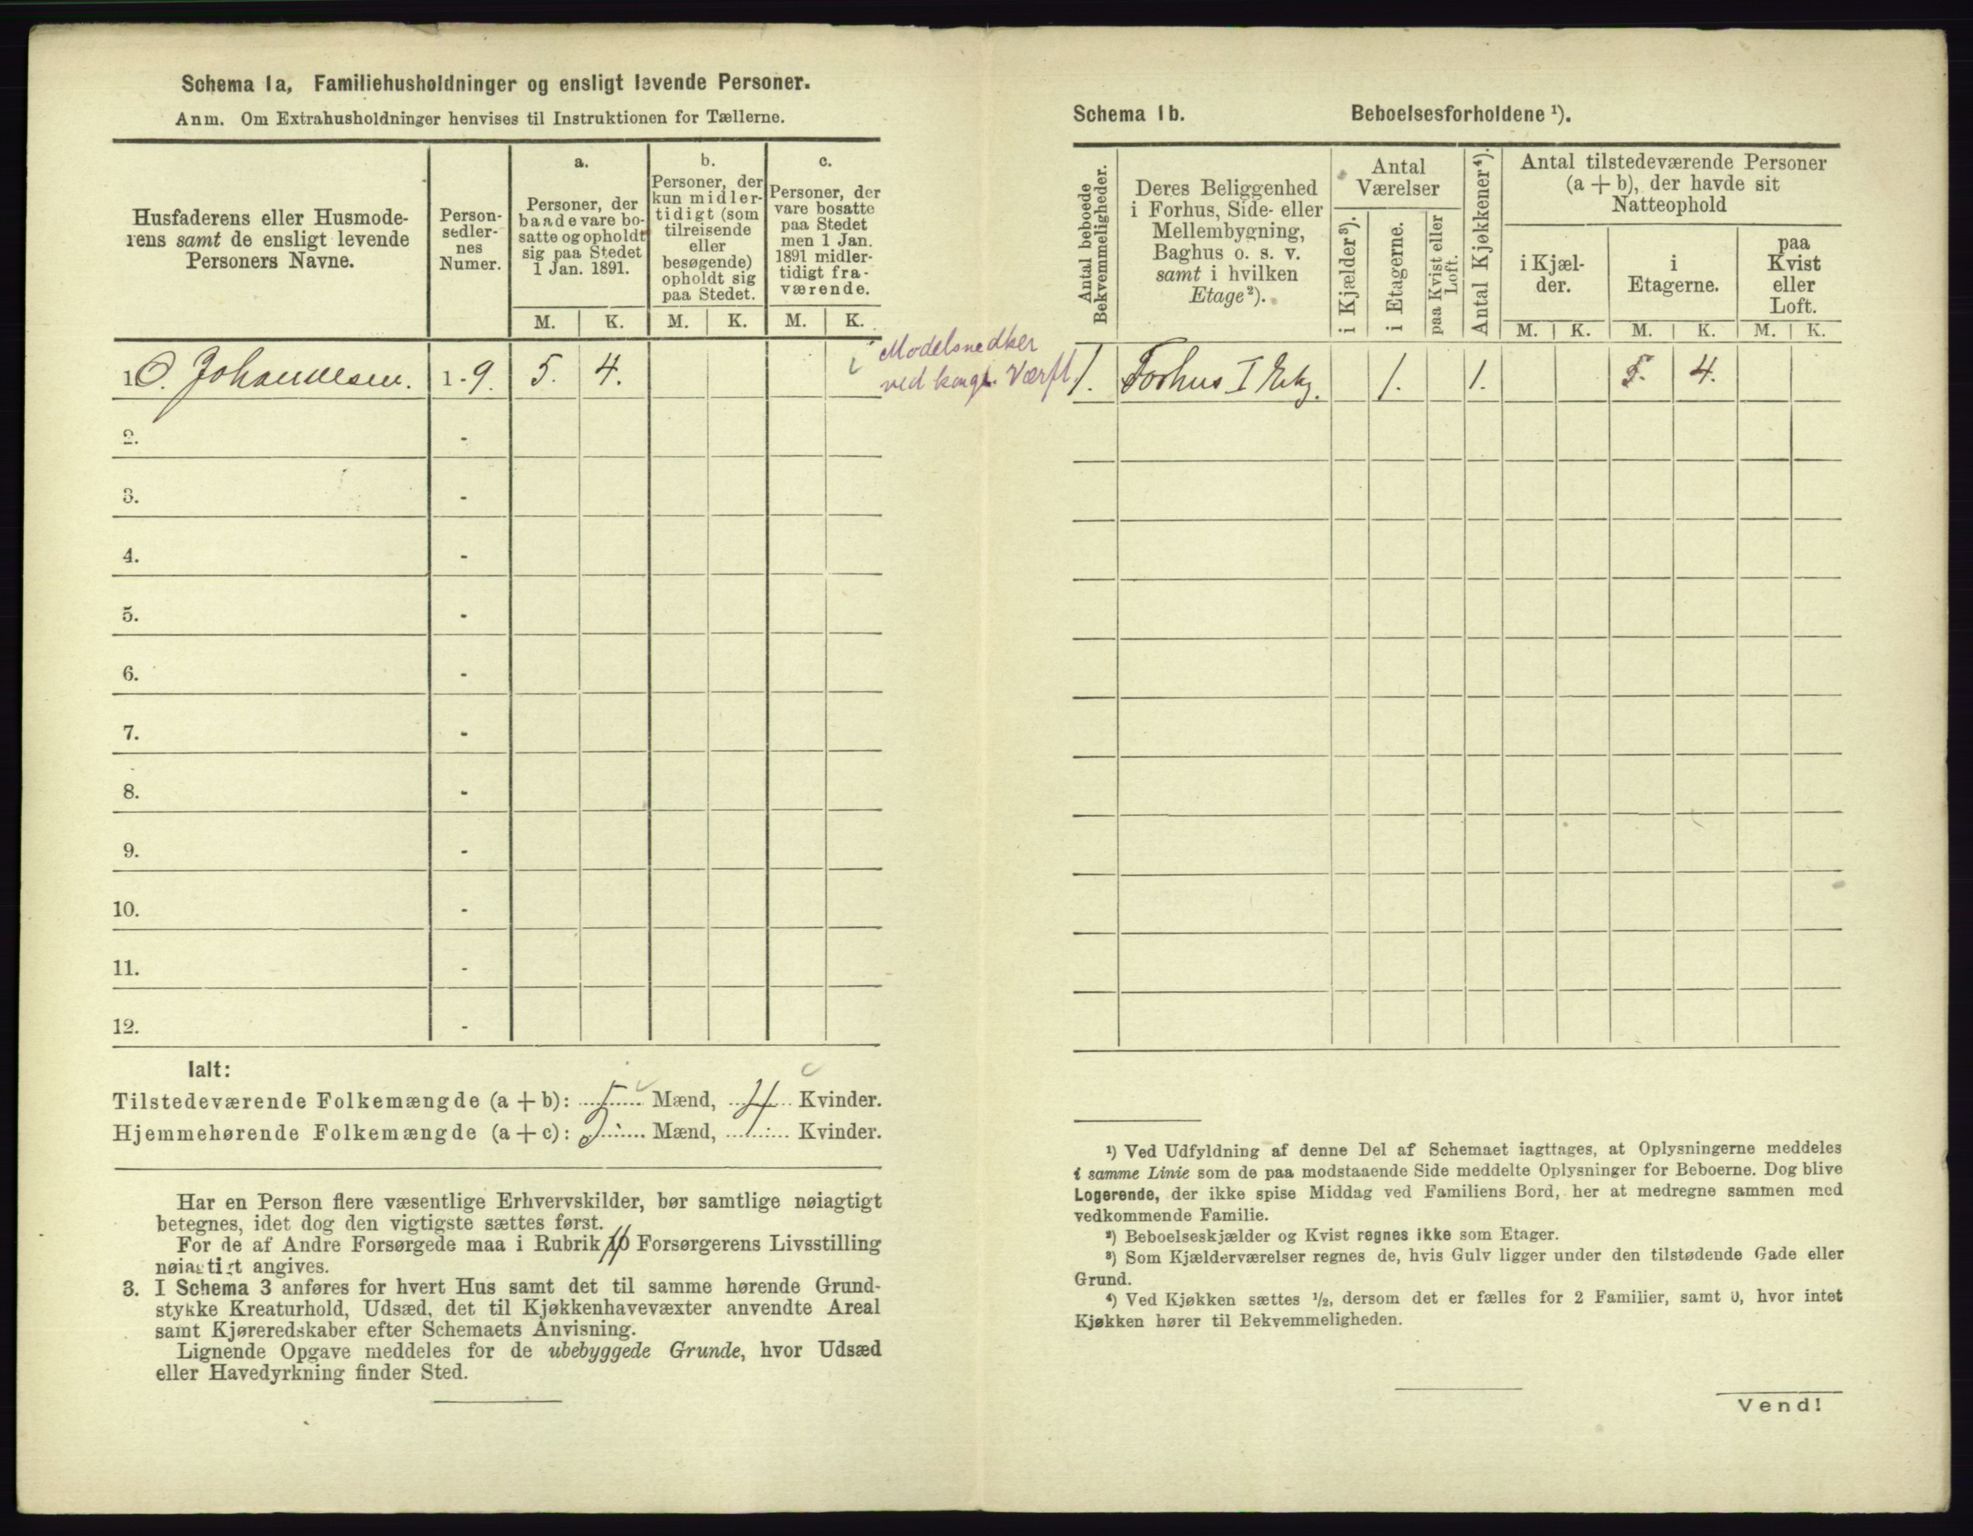 Schema 1a, Familiehusholdninger og ensligt levende Personer.
Anm. Om Extrahusholdninger henvises til Instruktionen for Tællerne.
Husfaderens eller Husmode-
rens samt de ensligt levende
Personers Navne.
Person-
sedler-
nes
Numer.
a.
Personer, der
baade vare bo-
satte og opholdt
sig paa Stedet
1 Jan. 1891.
b.
Personer, der
kun midler-
tidigt (som
tilreisende
eller
besøgende)
opholdt sig
paa Stedet.
c.
Personer, der
vare bosatte
paa Stedet
men 1 Jan.
1891 midler-
tidigt fra-
værende.
M. K. M. K. M. K.
1. O. Johannesen. 1-9. 5. 4.
Modelsnedker
ved kongl. Værft
2. -
3. -
4. -
5. -
6. -
7. -
8. -
9. -
10. -
11. -
12. -
Ialt:
Tilstedeværende Folkemængde (a + b): 5 Mænd, 4 Kvinder.
Hjemmehørende Folkemængde (a + c): Mænd, Kvinder.
Har en Person flere væsentlige Erhvervskilder, bør samtlige nøiagtigt
betegnes, idet dog den vigtigste sættes først.
For de af Andre Forsørgede maa i Rubrik 10 Forsørgerens Livsstilling
nøiagtigt angives.
3. I Schema 3 anføres for hvert Hus samt det til samme hørende Grund-
stykke Kreaturhold, Udsæd, det til Kjøkkenhavevæxter anvendte Areal
samt Kjøreredskaber efter Schemaets Anvisning.
Lignende Opgave meddeles for de ubebyggede Grunde, hvor Udsæd
eller Havedyrkning finder Sted.
Schema 1b. Beboelsesforholdene ¹).
Antal beboede
Bekvemmeligheder.
Deres Beliggenhed
i Forhus, Side- eller
Mellembygning,
Baghus o. s. v.
samt i hvilken
Etage²).
Antal
Værelser
i Kjælder³).
i Etagerne.
paa Kvist eller
Loft.
Antal Kjøkkener⁴).
Antal tilstedeværende Personer
(a + b), der havde sit
Natteophold
i Kjæl-
der.
i
Etagerne.
paa
Kvist
eller
Loft.
M. K. M. K. M. K.
1. Forhus I Etg. 1. 1. 5. 4.
¹) Ved Udfyldning af denne Del af Schemaet iagttages, at Oplysningerne meddeles
i samme Linie som de paa modstaaende Side meddelte Oplysninger for Beboerne. Dog blive
Logerende, der ikke spise Middag ved Familiens Bord, her at medregne sammen med
vedkommende Familie.
²) Beboelseskjælder og Kvist regnes ikke som Etager.
³) Som Kjælderværelser regnes de, hvis Gulv ligger under den tilstødende Gade eller
Grund.
⁴) Ved Kjøkken sættes ½, dersom det er fælles for 2 Familier, samt 0, hvor intet
Kjøkken hører til Bekvemmeligheden.
Vend!